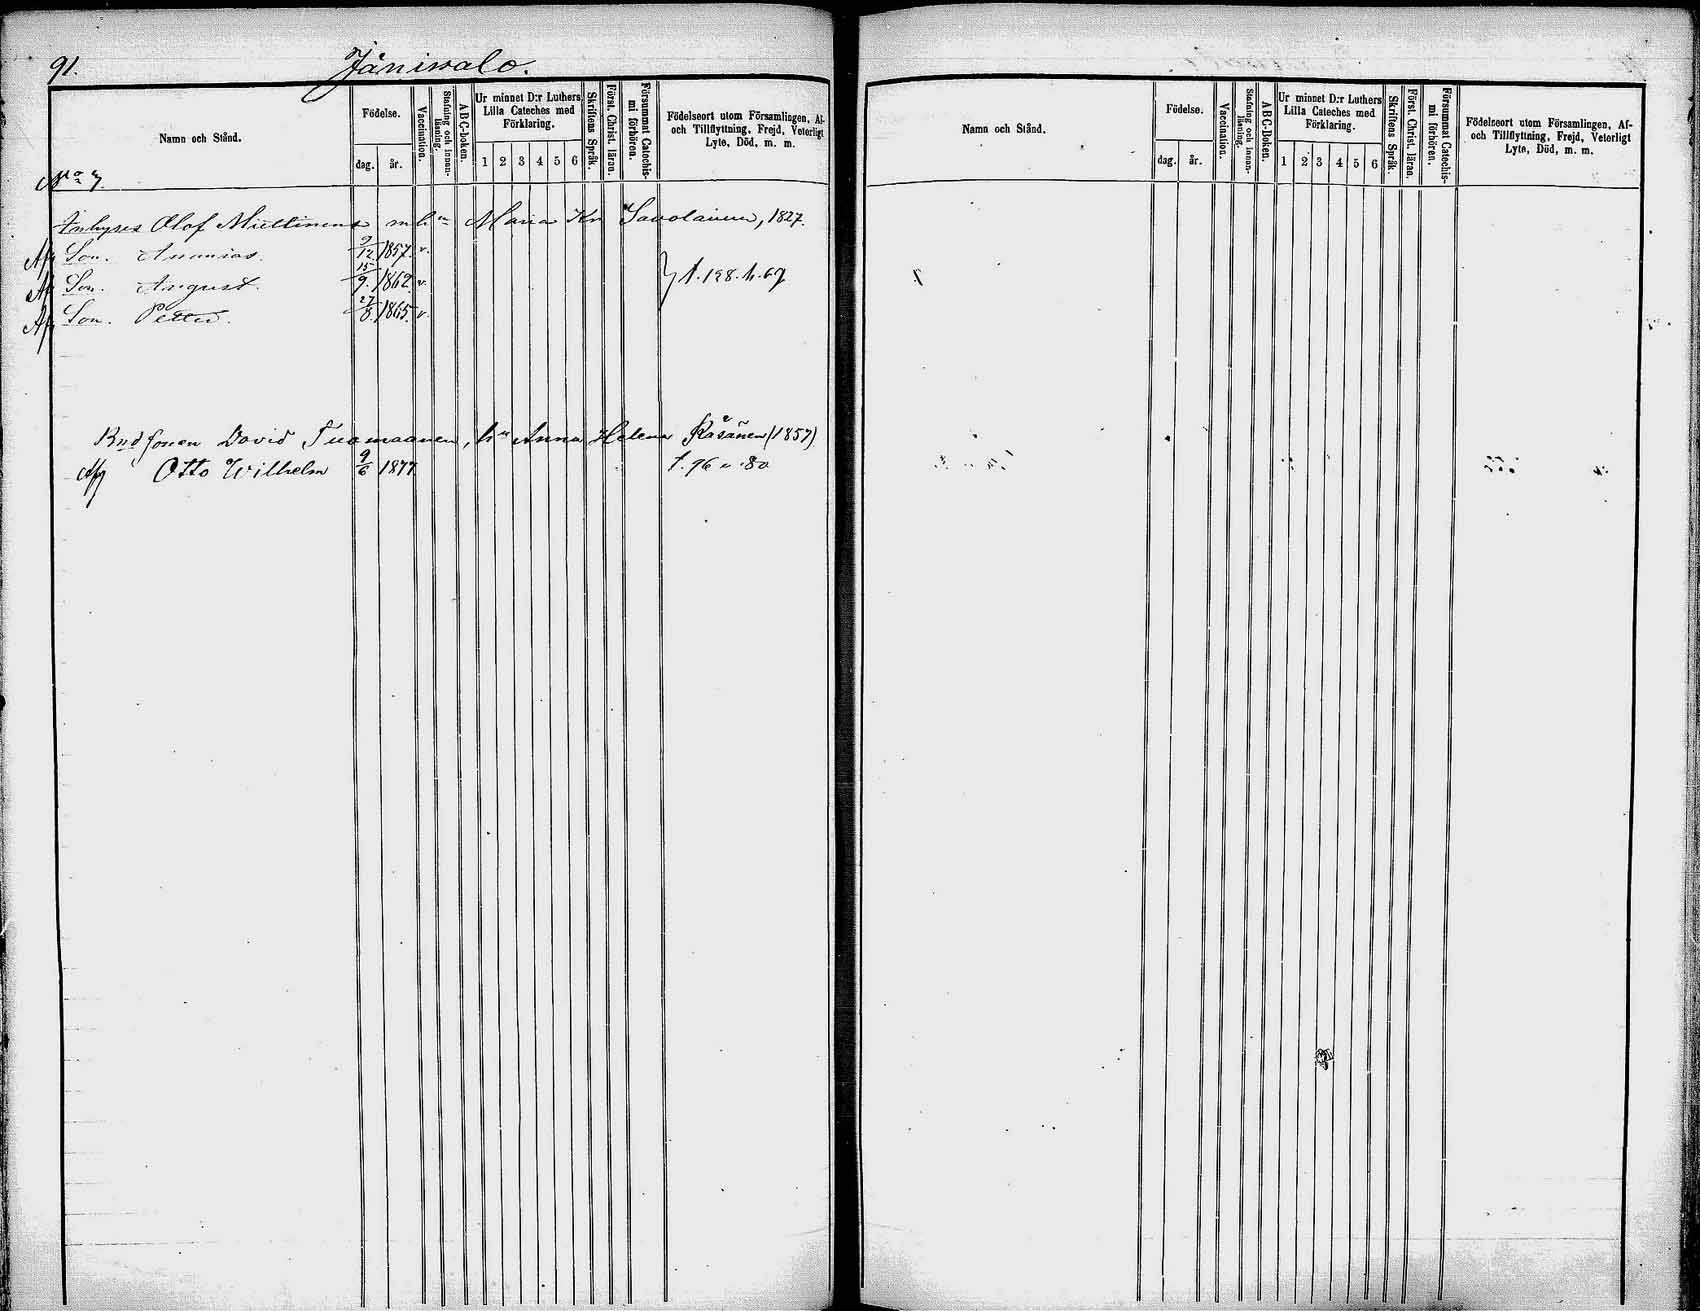 91. Jänisvalo.
Namn och Stånd.
Födelse.
dag. år.
Vaccination.
Stafning och innan-läsning.
ABC-boken.
Ur minnet D:r Luthers Lilla Cateches med Förklaring.
1 2 3 4 5 6
Skriftens Språk.
Först. Christ. läran.
Försummat Catechis-mi förhören.
Födelseort utom Församlingen, Af-
och Tillflyttning, Frejd, Veterligt
Lyte, Död, m. m.
No 7.
Inhyses Olof Miettinens m hu Maria Savolainen, 1827.
Afg Son. Ananias. 9/12 1857. v.
Af Son. August. 15/9. 1862 v. } f. 198. h. 67
Afg Son. Petter. 27/8. 1865. v.
Bndsonen David Tuomaanen, hu Anna Helena Räsänen (1857)
Afg Otto Wilhelm 9/6 1877. f. 96 80
Namn och Stånd.
Födelse.
dag. år.
Vaccination.
Stafning och innan-läsning.
ABC-Boken.
Ur minnet D:r Luthers Lilla Cateches med Förklaring.
1 2 3 4 5 6
Skriftens Språk.
Först. Christ. läran.
Försummat Catechis-mi förhören.
Födelseort utom Församlingen, Af-
och Tillflyttning, Frejd, Veterligt
Lyte, Död, m. m.